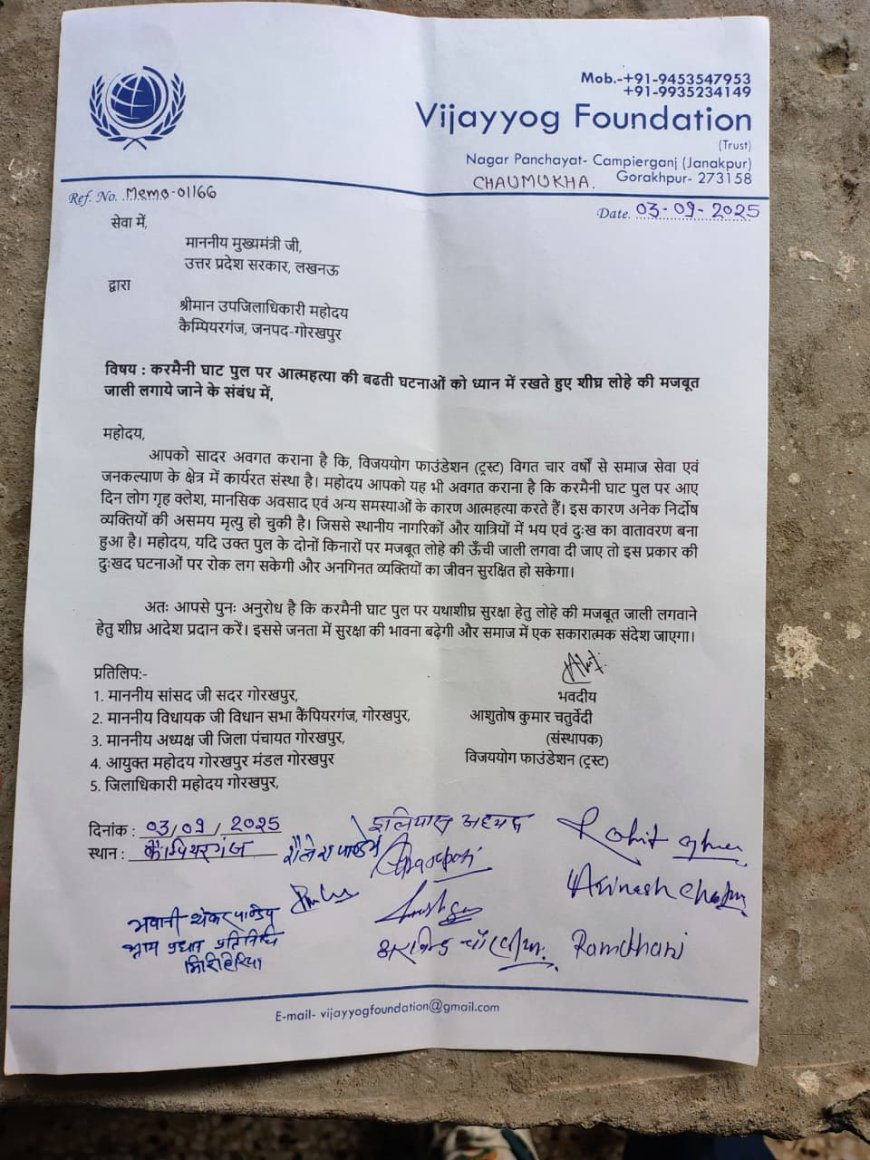 Mob.-+91-9453547953
+91-9935234149
Vijayyog Foundation
(Trust)
Nagar Panchayat- Campierganj (Janakpur)
CHAUMUKHA. Gorakhpur- 273158
Ref. No. Memo-01166
Date. 03-09-2025
सेवा में,
माननीय मुख्यमंत्री जी,
उत्तर प्रदेश सरकार, लखनऊ
द्वारा
श्रीमान उपजिलाधिकारी महोदय
कैम्पियरगंज, जनपद-गोरखपुर
विषय : करमैनी घाट पुल पर आत्महत्या की बढती घटनाओं को ध्यान में रखते हुए शीघ्र लोहे की मजबूत
जाली लगाये जाने के संबंध में,
महोदय,
आपको सादर अवगत कराना है कि, विजययोग फाउंडेशन (ट्रस्ट) विगत चार वर्षों से समाज सेवा एवं
जनकल्याण के क्षेत्र में कार्यरत संस्था है। महोदय आपको यह भी अवगत कराना है कि करमैनी घाट पुल पर आए
दिन लोग गृह क्लेश, मानसिक अवसाद एवं अन्य समस्याओं के कारण आत्महत्या करते हैं। इस कारण अनेक निर्दोष
व्यक्तियों की असमय मृत्यु हो चुकी है। जिससे स्थानीय नागरिकों और यात्रियों में भय एवं दुःख का वातावरण बना
हुआ है। महोदय, यदि उक्त पुल के दोनों किनारों पर मजबूत लोहे की ऊँची जाली लगवा दी जाए तो इस प्रकार की
दुःखद घटनाओं पर रोक लग सकेगी और अनगिनत व्यक्तियों का जीवन सुरक्षित हो सकेगा।
अतः आपसे पुनः अनुरोध है कि करमैनी घाट पुल पर यथाशीघ्र सुरक्षा हेतु लोहे की मजबूत जाली लगवाने
हेतु शीघ्र आदेश प्रदान करें। इससे जनता में सुरक्षा की भावना बढ़ेगी और समाज में एक सकारात्मक संदेश जाएगा।
प्रतिलिप:-
1. माननीय सांसद जी सदर गोरखपुर,
2. माननीय विधायक जी विधान सभा कैंपियरगंज, गोरखपुर,
3. माननीय अध्यक्ष जी जिला पंचायत गोरखपुर,
4. आयुक्त महोदय गोरखपुर मंडल गोरखपुर
5. जिलाधिकारी महोदय गोरखपुर,
भवदीय
आशुतोष कुमार चतुर्वेदी
(संस्थापक)
विजययोग फाउंडेशन (ट्रस्ट)
दिनांक : 03/09/2025
स्थान : कैम्पियरगंज
शैलेश पाण्डेय
इलियास अहमद
Rohit
Avinash
भवानी शंकर पाण्डेय
ग्राम प्रधान प्रतिनिधि
अरविन्द
Ramdhani
E-mail- vijayyogfoundation@gmail.com